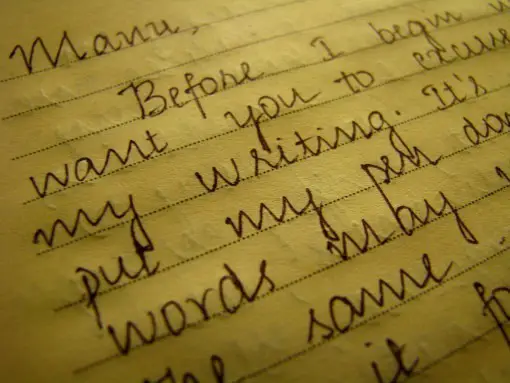 Manu,
Before I begin
want you to excuse
my writing. It's
put my pen
words in by
the same.
it